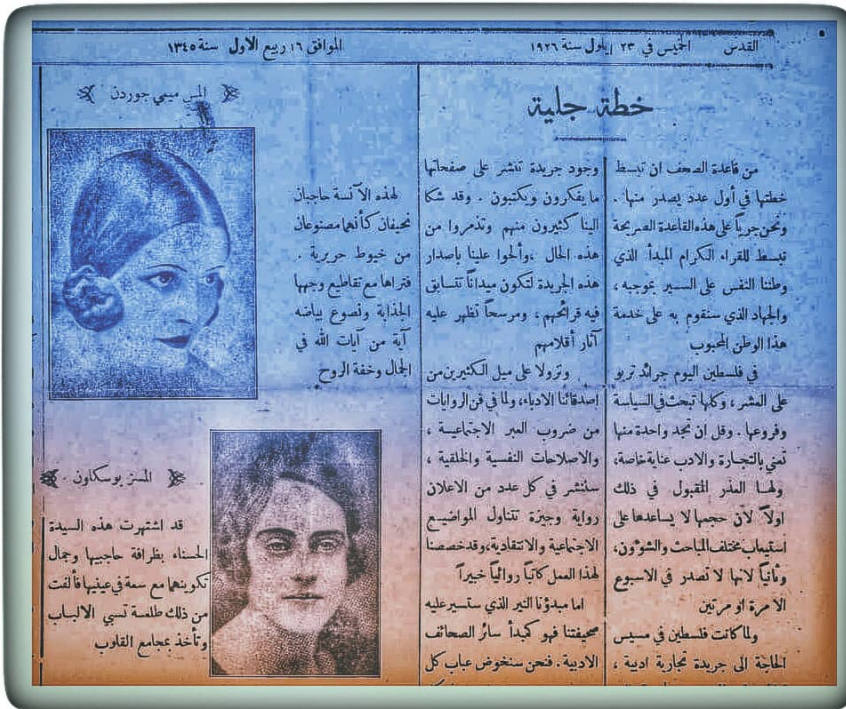 القدس الخميس في ٢٣ ايلول سنة ١٩٢٦ الموافق ١٦ ربيع الاول سنة ١٣٤٥
خطة جلية
من قاعدة الصحف ان تبسط
خطتها في أول عدد يصدر منها .
ونحن جرياً على هذه القاعدة الصريحة
نبسط للقراء الكرام المبدأ الذي
وطنا النفس على السير بموجبه ،
والجهاد الذي سنقوم به على خدمة
هذا الوطن المحبوب
في فلسطين اليوم جرائد تربو
على العشر ، وكلها تبحث في السياسة
وفروعها . وقل ان تجد واحدة منها
تعنى بالتجارة والادب عناية خاصة،
ولهما العذر المقبول في ذلك
اولاً لان حجمها لا يساعدها على
استيعاب مختلف المباحث والشؤون،
وثانياً لانها لا تصدر في الاسبوع
الا مرة او مرتين
ولما كانت فلسطين في مسيس
الحاجة الى جريدة تجارية ادبية ،
وجود جريدة تنشر على صفحاتها
ما يفكرون ويكتبون . وقد شكا
الينا كثيرون منهم وتذمروا من
هذه الحال ، وألحوا علينا باصدار
هذه الجريدة لتكون ميداناً تتسابق
فيه قرائحهم ، ومرسحاً تظهر عليه
آثار أقلامهم
ونزولا على ميل الكثيرين من
اصدقائنا الادباء، ولما في فن الروايات
من ضروب العبر الاجتماعية ،
والاصلاحات النفسية والخلقية ،
سننشر في كل عدد من الاعلان
رواية وجيزة تتناول المواضيع
الاجتماعية والانتقادية، وقد خصصنا
لهذا العمل كاتباً روائياً خبيراً
اما مبدؤنا النير الذي ستسير عليه
صحيفتنا فهو كمبدأ سائر الصحائف
الادبية . فنحن سنخوض عباب كل
المس ميمي جوردن
لهذه الآنسة حاجبان
نحيفان كأنهما مصنوعان
من خيوط حريرية .
فتراها مع تقاطيع وجهها
الجذابة ونصوع بياضه
آية من آيات الله في
الجمال وخفة الروح
المسز بوسكاون
قد اشتهرت هذه السيدة
الحسناء بظرافة حاجبيها وجمال
تكوينهما مع سعة في عينيها فألفت
من ذلك طلعة تسبي الالباب
وتأخذ بمجامع القلوب